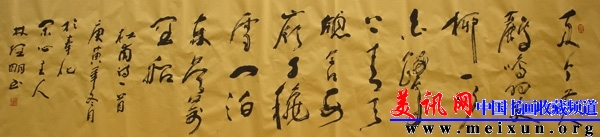 两个黄
鹂鸣翠
柳一行
白鹭
上青天
窗含西
岭千秋
雪门泊
东吴万
里船
杜甫诗一首
庚寅年冬月
于奉化
主人
书
美讯网 中国书画收藏频道
www.meixun.org